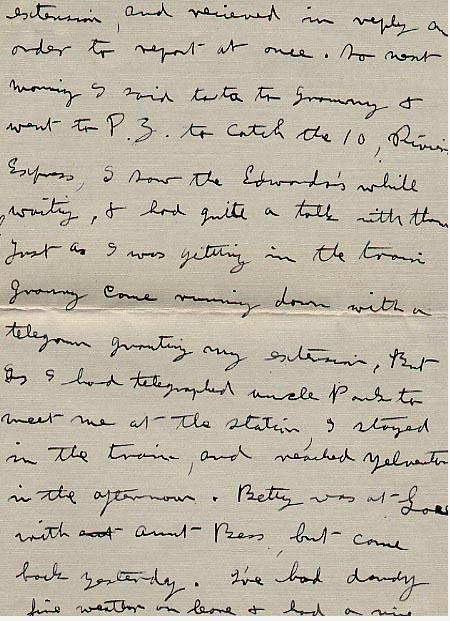 extension, and recieved in reply an
order to report at once. So next
morning I said tata to Granny &
went to P.Z. to catch the 10, Rivier
Express, I saw the Edwards's while
waiting, & had quite a talk with them
Just as I was getting in the train
Granny came running down with a
telegram granting my extension, But
as I had telegraphed uncle Park to
meet me at the station, I stayed
in the train, and reached Yelverton
in the afternoon. Betty was at
with aunt Bess, but came
back yesterday. I've had dandy
fine weather on leave & had a nice